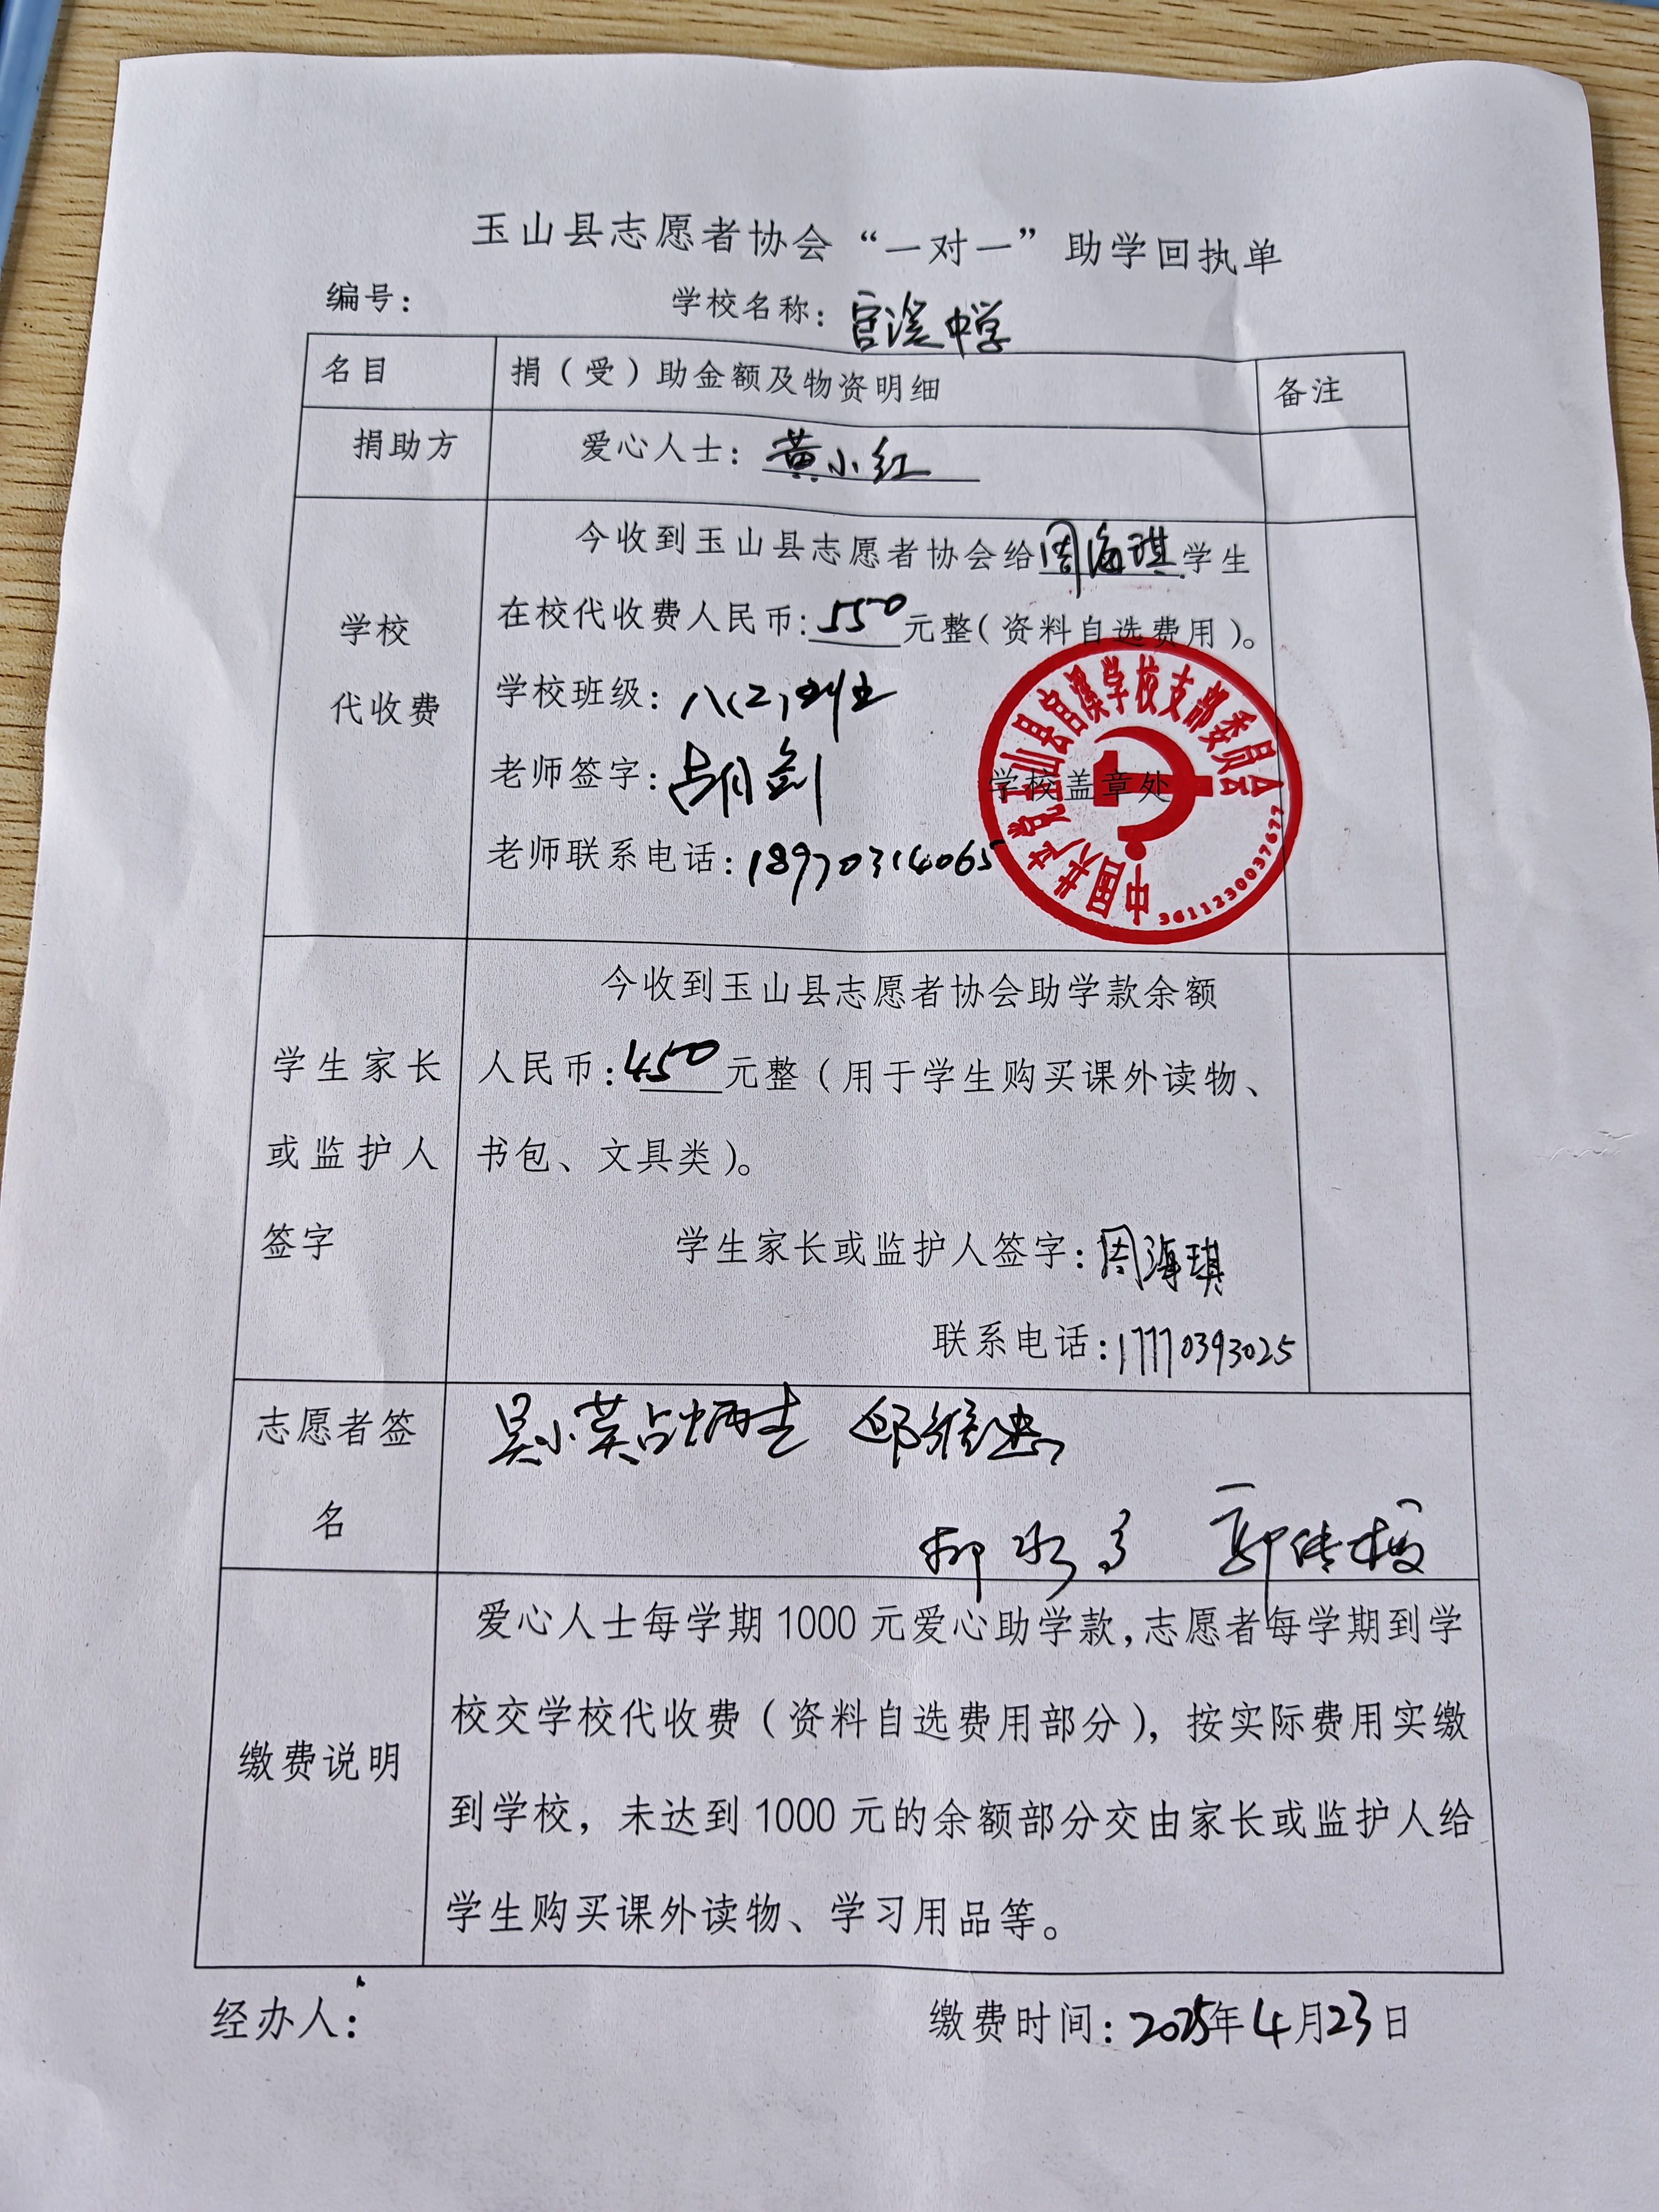 玉山县志愿者协会“一对一”助学回执单
编号： 学校名称：官溪中学
名目 捐（受）助金额及物资明细 备注
捐助方 爱心人士：黄小红
今收到玉山县志愿者协会给周海琪学生
在校代收费人民币：550元整（资料自选费用）。
学校
代收费
学校班级：八(2)班
老师签字：占月剑
学校盖章处
老师联系电话：18970314065
中国共产党玉山县官溪学校支部委员会
3611230037677
今收到玉山县志愿者协会助学款余额
人民币：450元整（用于学生购买课外读物、
书包、文具类）。
学生家长
或监护人
签字
学生家长或监护人签字：周海琪
联系电话：17770393025
志愿者签
名
吴小英 占炳生
缴费说明
爱心人士每学期1000元爱心助学款，志愿者每学期到学
校交学校代收费（资料自选费用部分），按实际费用实缴
到学校，未达到1000元的余额部分交由家长或监护人给
学生购买课外读物、学习用品等。
经办人： 缴费时间：2025年4月23日